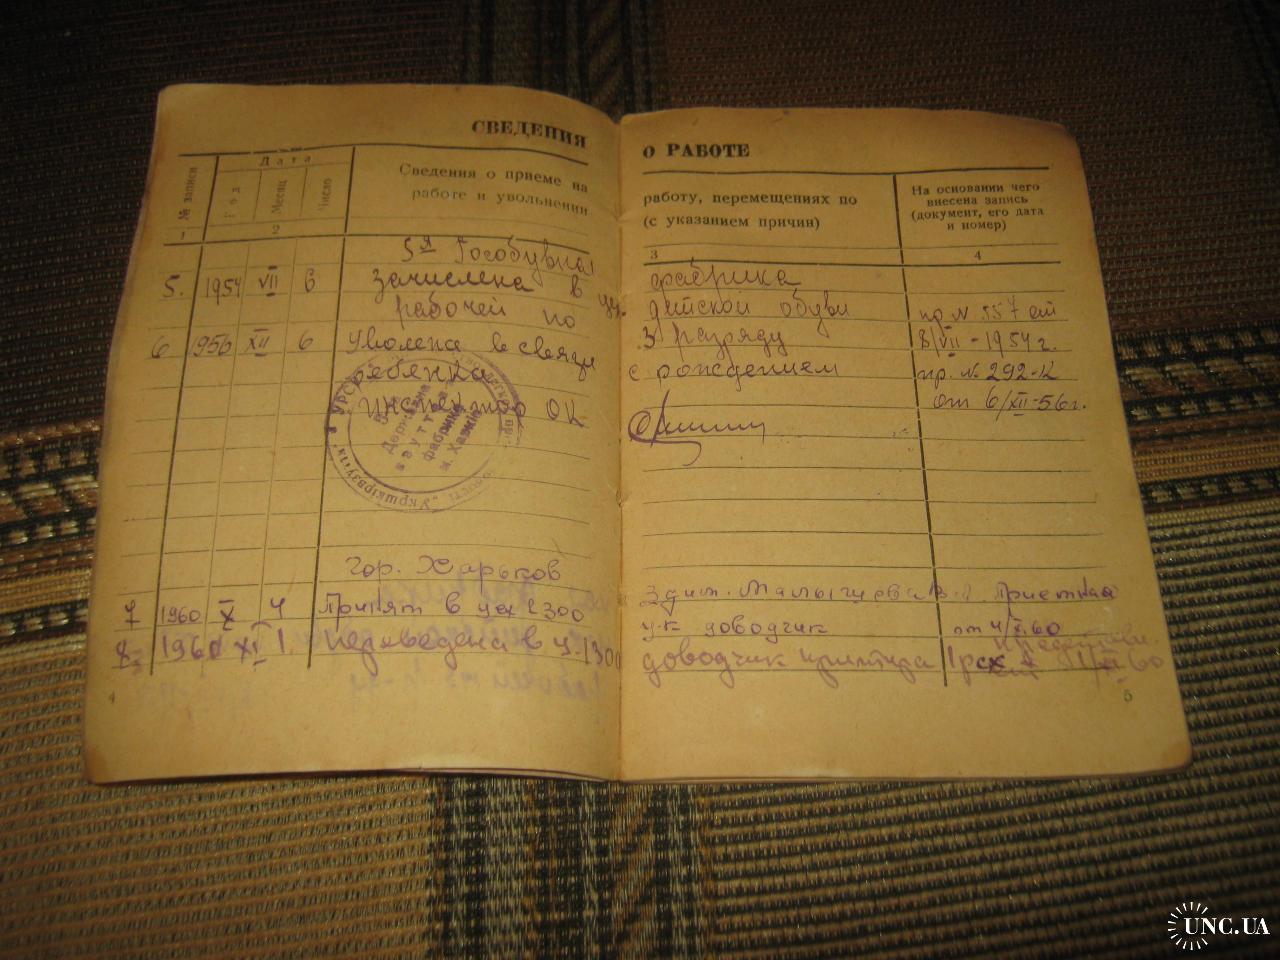 СВЕДЕНИЯ
№ записи
Дата
Год
Месяц
Число
Сведения о приеме на
работе и увольнении
1
2
5я Гособувная
5. 1954 VII 6 Зачислена в цех
рабочей по
6 1956 XII 6 Уволена в связи
ребенка
инспектор ОК
УРСР
5-та
Державна
взуттєва
фабрика
м. Харків
"Укршкірвзуття"
гор. Харьков
7 1960 X 4 Принят в цех 2300
8. 1960 XI 1. Переведена в ц. 1300
4
О РАБОТЕ
работу, перемещениях по
(с указанием причин)
На основании чего
внесена запись
(документ, его дата
и номер)
3
4
фабрика
детской обуви пр N 557 от
3 разряду 8/VII-1954 г.
с рождением пр. № 292-К
от 6/XII-56 г.
З-д им. Малышева
доводчик от 4/X 60
доводчик 1/XI 60
5
UNC.UA